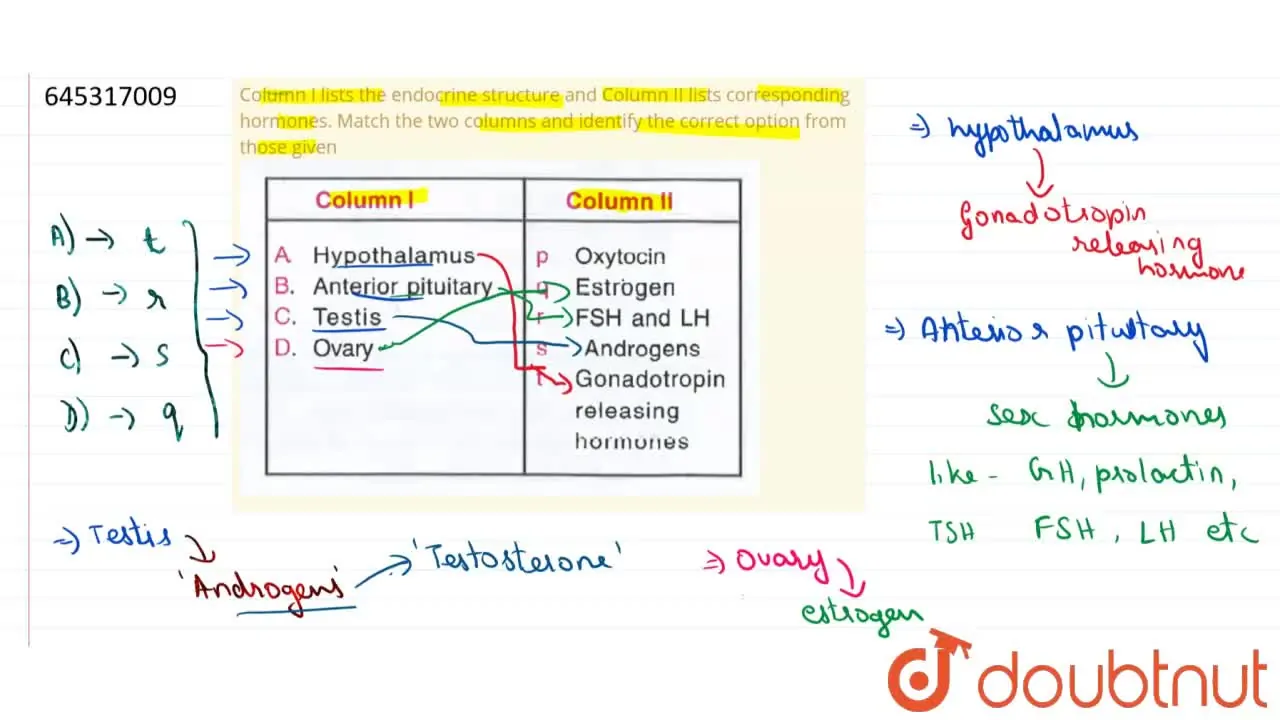 645317009
Column I lists the endocrine structure and Column II lists corresponding
hormones. Match the two columns and identify the correct option from
those given
Column I Column II
A. Hypothalamus p Oxytocin
B. Anterior pituitary q Estrogen
C. Testis r FSH and LH
D. Ovary s Androgens
t Gonadotropin
releasing
hormones
A) → t
B) → r
C) → s
D) → q
⇒ hypothalamus
Gonadotropin
releasing
hormone
⇒ Anterior pituitary
sex hormones
like - GH, prolactin,
TSH FSH, LH etc
⇒ Testis
'Androgens' → 'Testosterone'
⇒ Ovary
estrogen
doubtnut